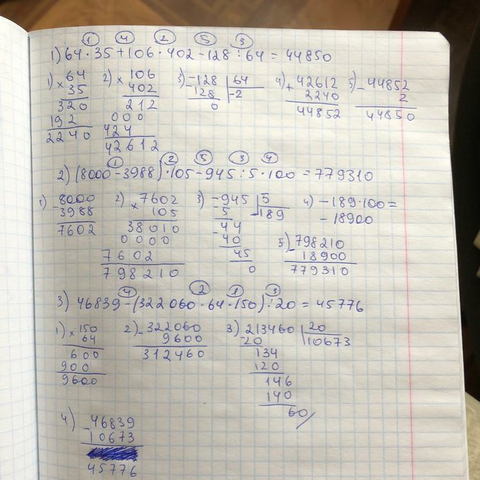 1 4 2 5 3
1) 64·35+106·402-128:64=44850
1) ×64 2) ×106 3) -128 | 64 4) +42612 5) -44852
35 402 128 | -2 2240 2
320 212 0 44852 44850
192 000
2240 424
42612
1 2 5 3 4
2) (8000-3988)·105-945:5·100=779310
1) -8000 2) ×7602 3) -945 | 5 4) -189·100=
3988 105 5 | -189 -18900
7602 38010 -44
0000 40 5) -798210
7602 45 18900
798210 0 779310
4 2 1 3
3) 46839-(322060-64·150):20=45776
1) ×150 2) -322060 3) 213460 | 20
64 9600 20 | 10673
600 312460 134
900 120
9600 146
140
60/
4) -46839
10673
45776